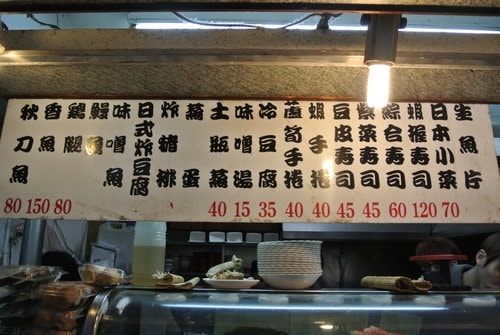 生魚片
日本小菜 70
蝦握寿司 120
綜合寿司 60
紫菜寿司 45
豆皮寿司 45
蝦手捲 40
蘆筍手捲 40
冷豆腐 35
味噌湯 15
土瓶蒸 40
蒸蛋
炸豬排
日式炸豆腐
味噌魚
鰻魚
鷄腿 80
香魚 150
秋刀魚 80